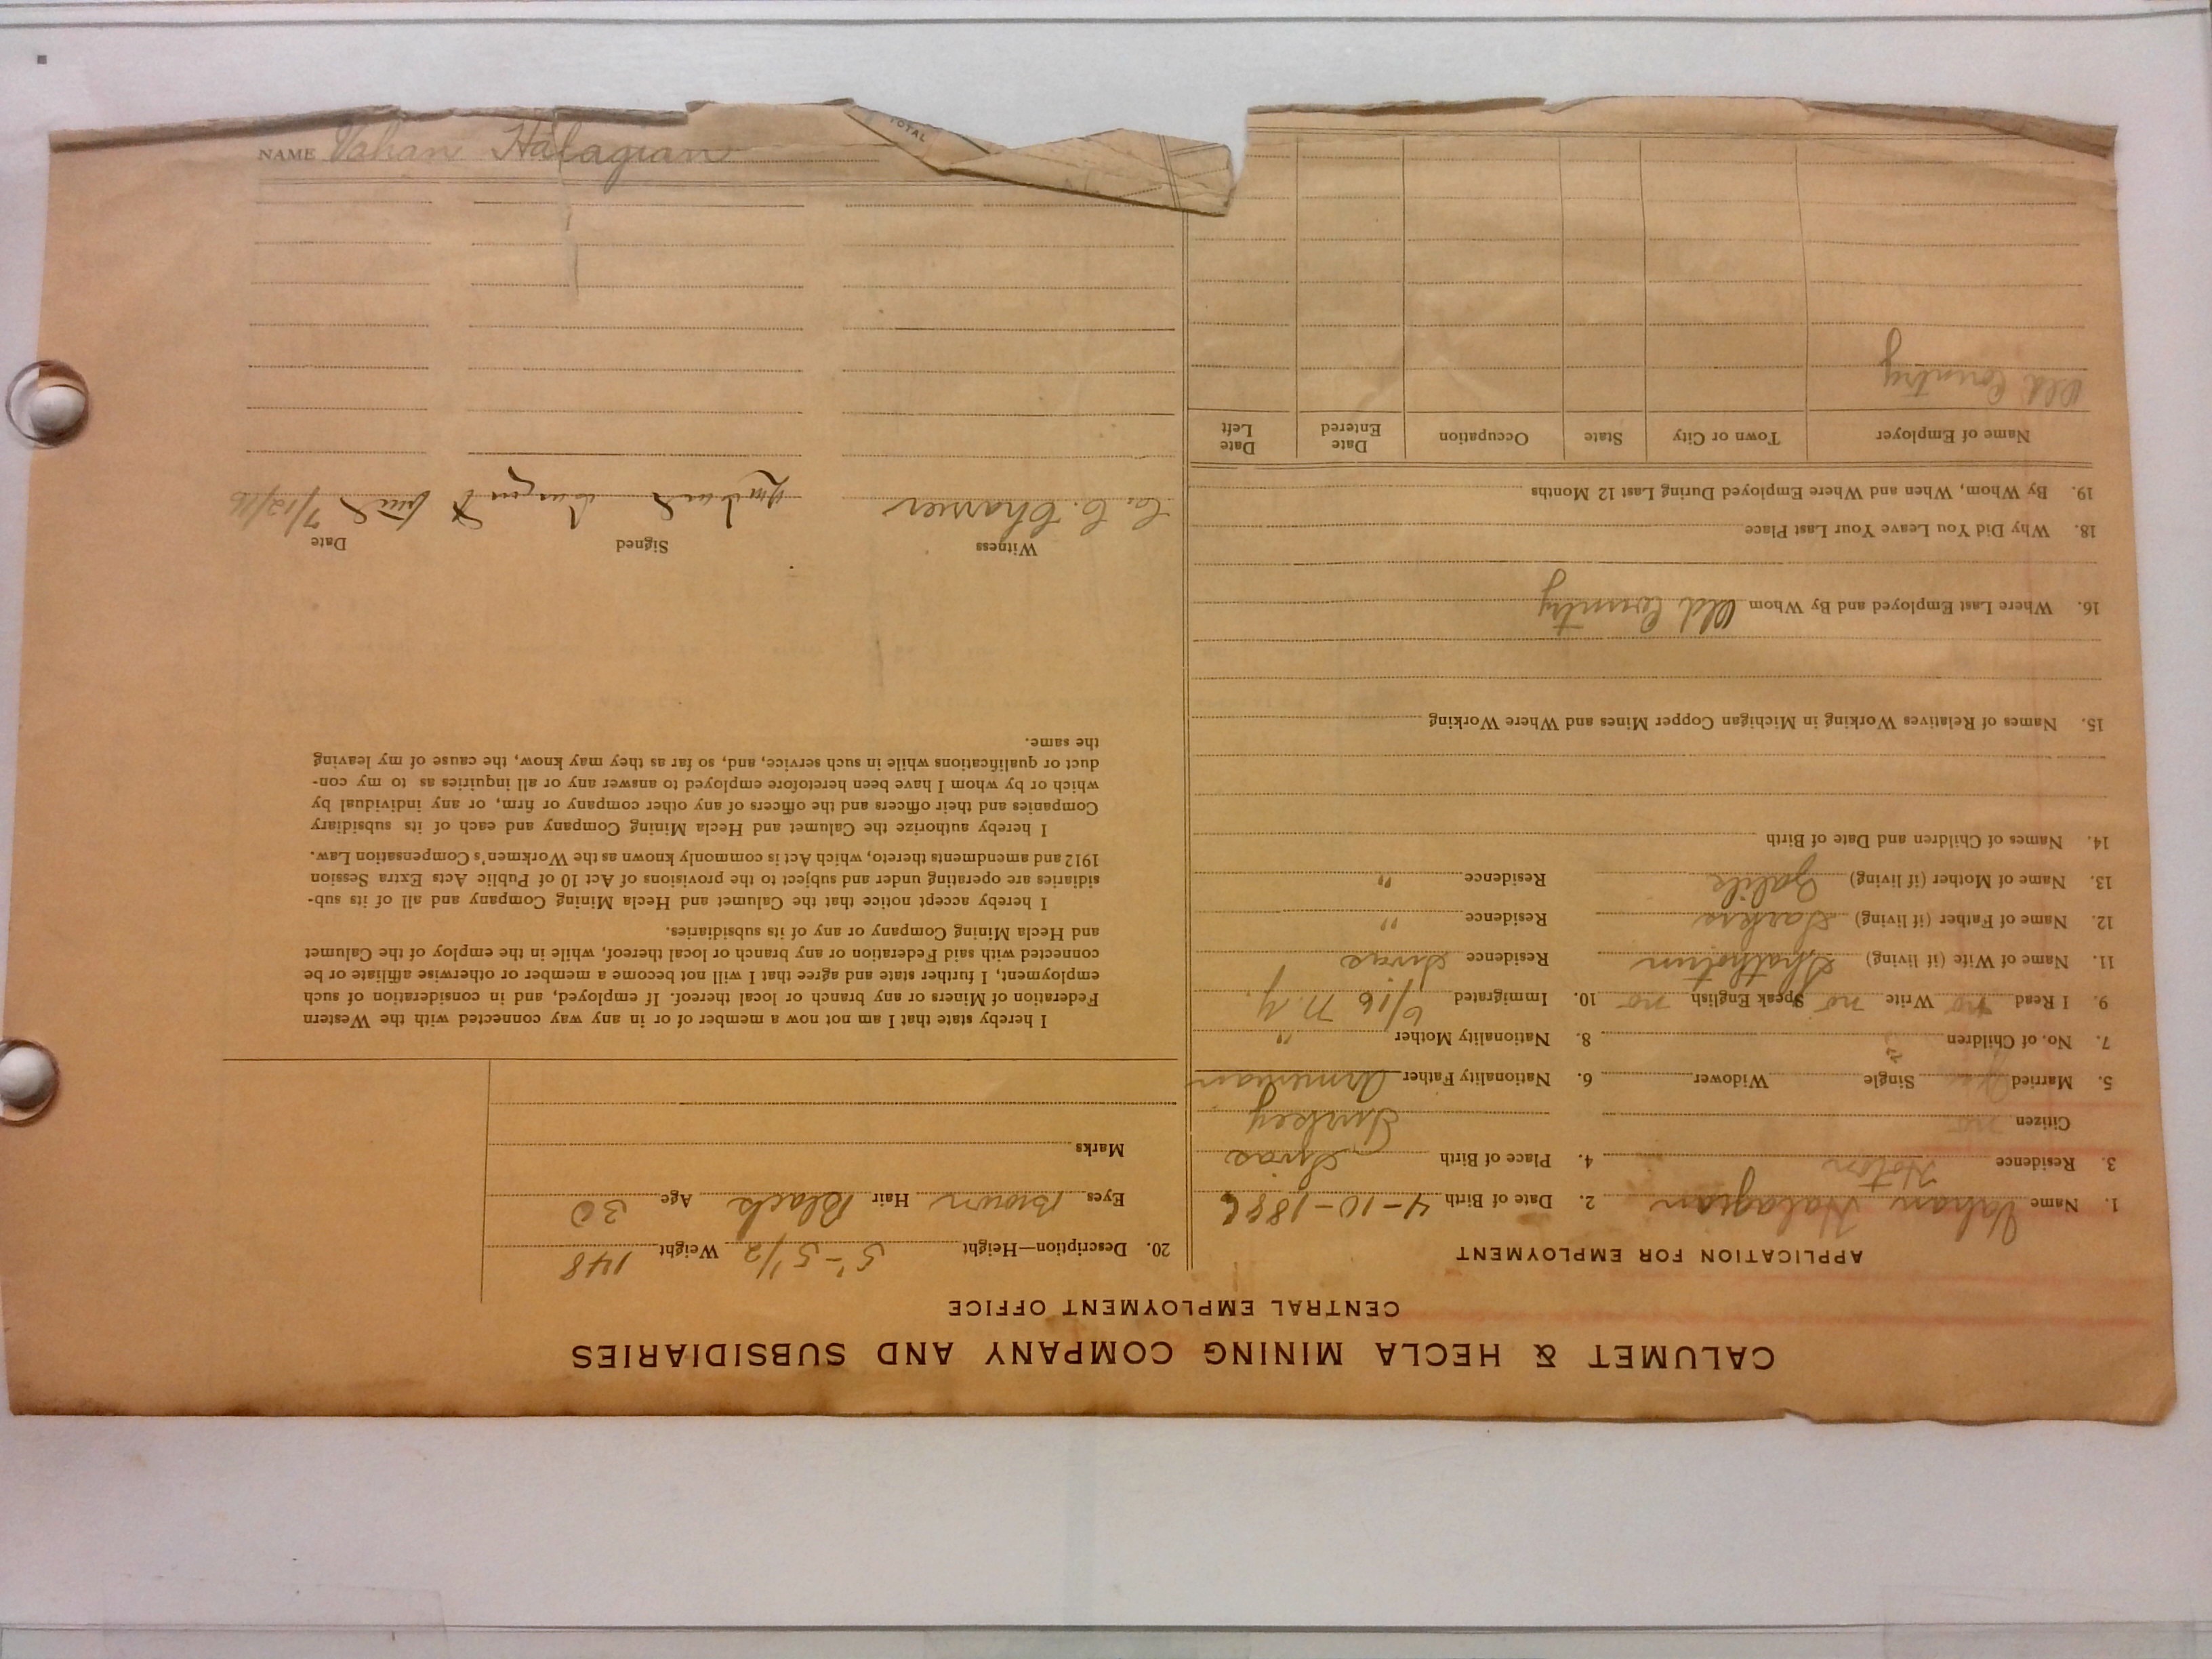 CALUMET & HECLA MINING COMPANY AND SUBSIDIARIES
CENTRAL EMPLOYMENT OFFICE
APPLICATION FOR EMPLOYMENT
1. Name Vahan Halagian 2. Date of Birth 4-10-1886
3. Residence Hotor 4. Place of Birth Sivas
Citizen no Turkey
5. Married Yes Single Widower 6. Nationality Father Armenian
7. No. of Children 8. Nationality Mother "
9. I Read no Write no Speak English no 10. Immigrated 6/16 N.Y.
11. Name of Wife (if living) Residence Sivas
12. Name of Father (if living) Residence "
13. Name of Mother (if living) Residence "
14. Names of Children and Date of Birth
15. Names of Relatives Working in Michigan Copper Mines and Where Working
16. Where Last Employed and By Whom Old Country
18. Why Did You Leave Your Last Place
19. By Whom, When and Where Employed During Last 12 Months
Name of Employer Town or City State Occupation Date Entered Date Left
Old Country
20. Description—Height 5'-5 1/2 Weight 148
Eyes Brown Hair Black Age 30
Marks
I hereby state that I am not now a member of or in any way connected with the Western
Federation of Miners or any branch or local thereof. If employed, and in consideration of such
employment, I further state and agree that I will not become a member or otherwise affiliate or be
connected with said Federation or any branch or local thereof, while in the employ of the Calumet
and Hecla Mining Company or any of its subsidiaries.
I hereby accept notice that the Calumet and Hecla Mining Company and all of its sub-
sidiaries are operating under and subject to the provisions of Act 10 of Public Acts Extra Session
1912 and amendments thereto, which Act is commonly known as the Workmen's Compensation Law.
I hereby authorize the Calumet and Hecla Mining Company and each of its subsidiary
Companies and their officers and the officers of any other company or firm, or any individual by
which or by whom I have been heretofore employed to answer any or all inquiries as to my con-
duct or qualifications while in such service, and, so far as they may know, the cause of my leaving
the same.
Witness Signed Date
7/12/16
NAME Vahan Halagian
TOTAL